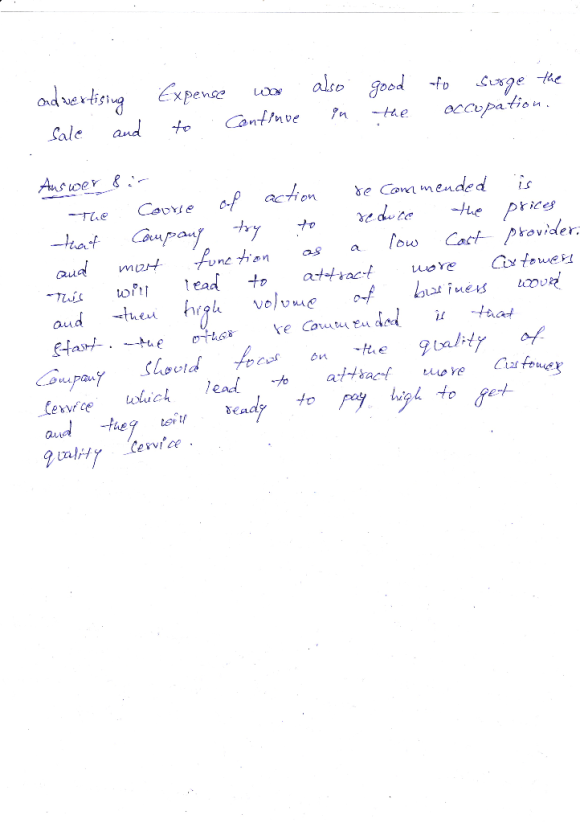 advertising Expense was also good to surge the
Sale and to Continue in the occupation.
Answer 8 :-
The Course of action recommended is
that Company try to reduce the prices
and must function as a low Cost provider.
This will lead to attract more Customers
and then high volume of business would
start. The other recommended is that
Company should focus on the quality of
Service which lead to attract more Customers
and they will ready to pay high to get
quality Service.